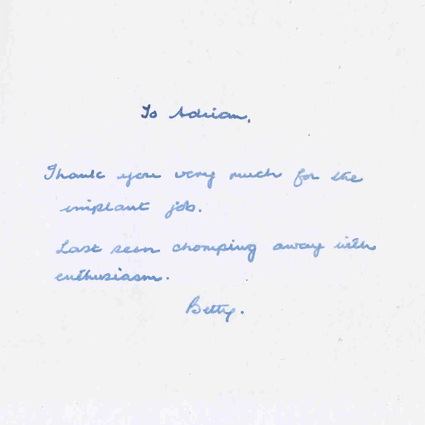 To Adrian,
Thank you very much for the
implant job.
Last seen chomping away with
enthusiasm.
Betty.